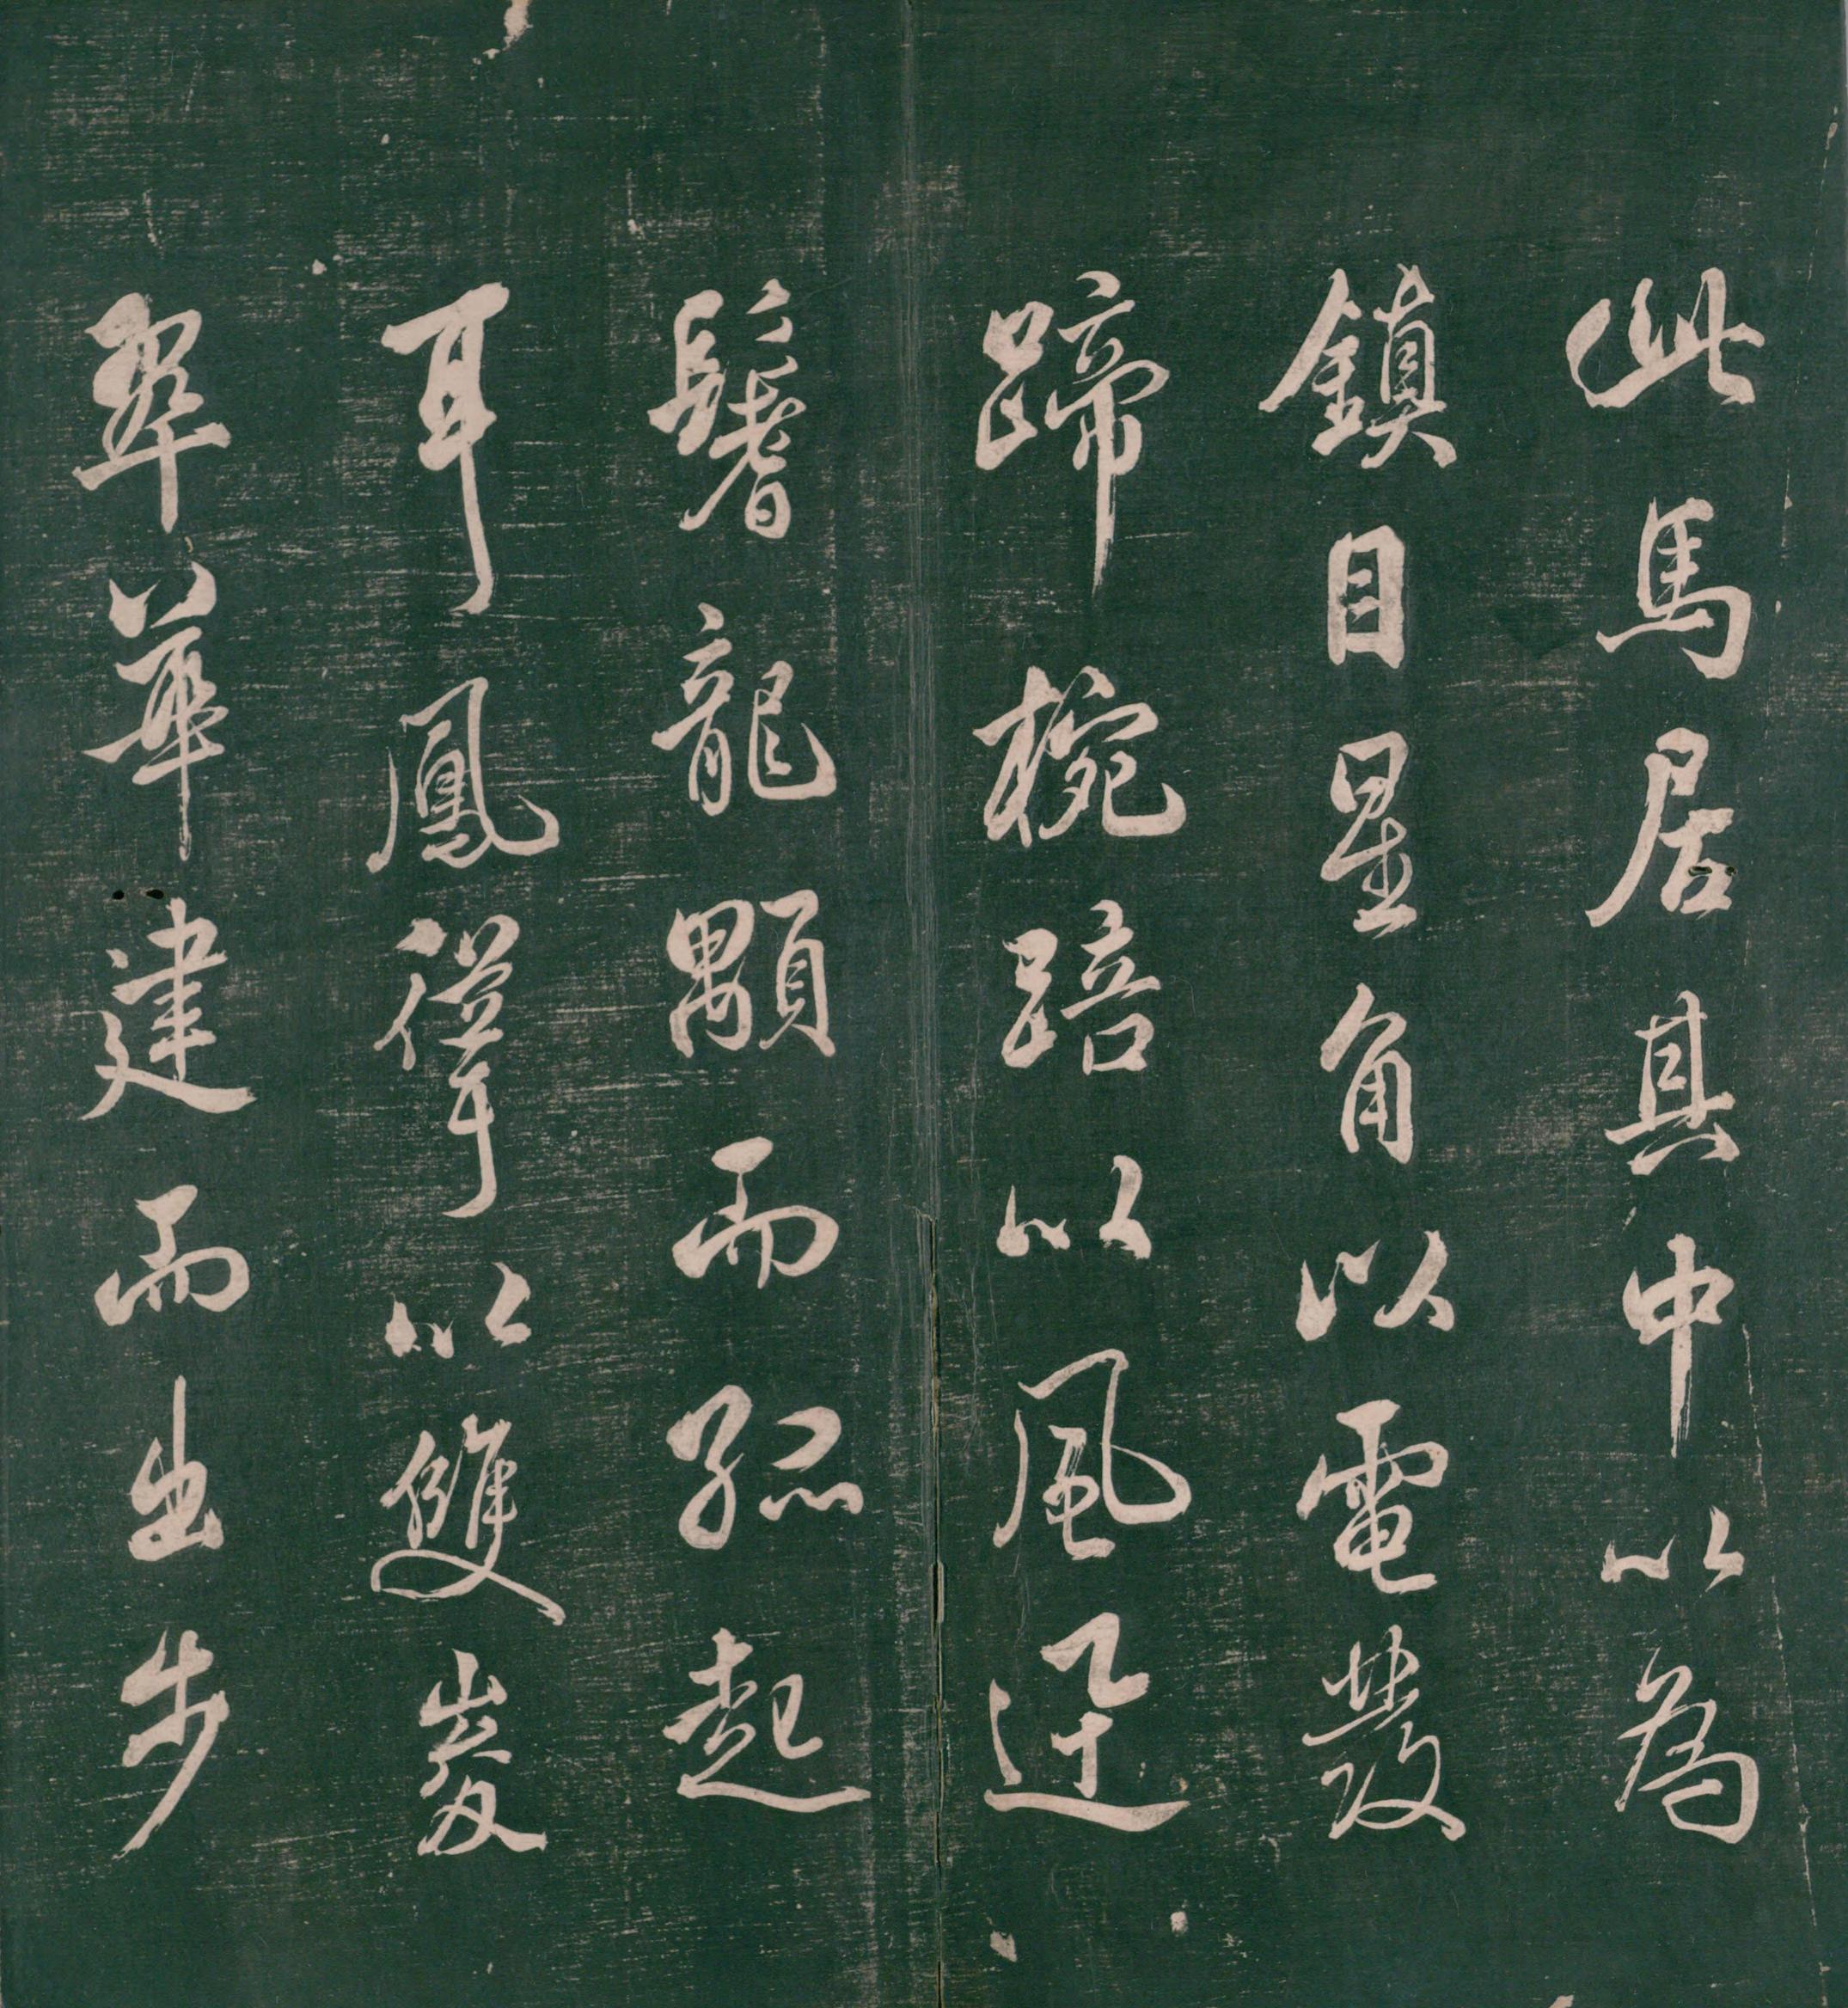 此馬居其中以為
鎮目星角以電發
蹄椀踣以風迅
鬐龍顒而孤起
耳鳳聳以雙峻
翠華建而出步